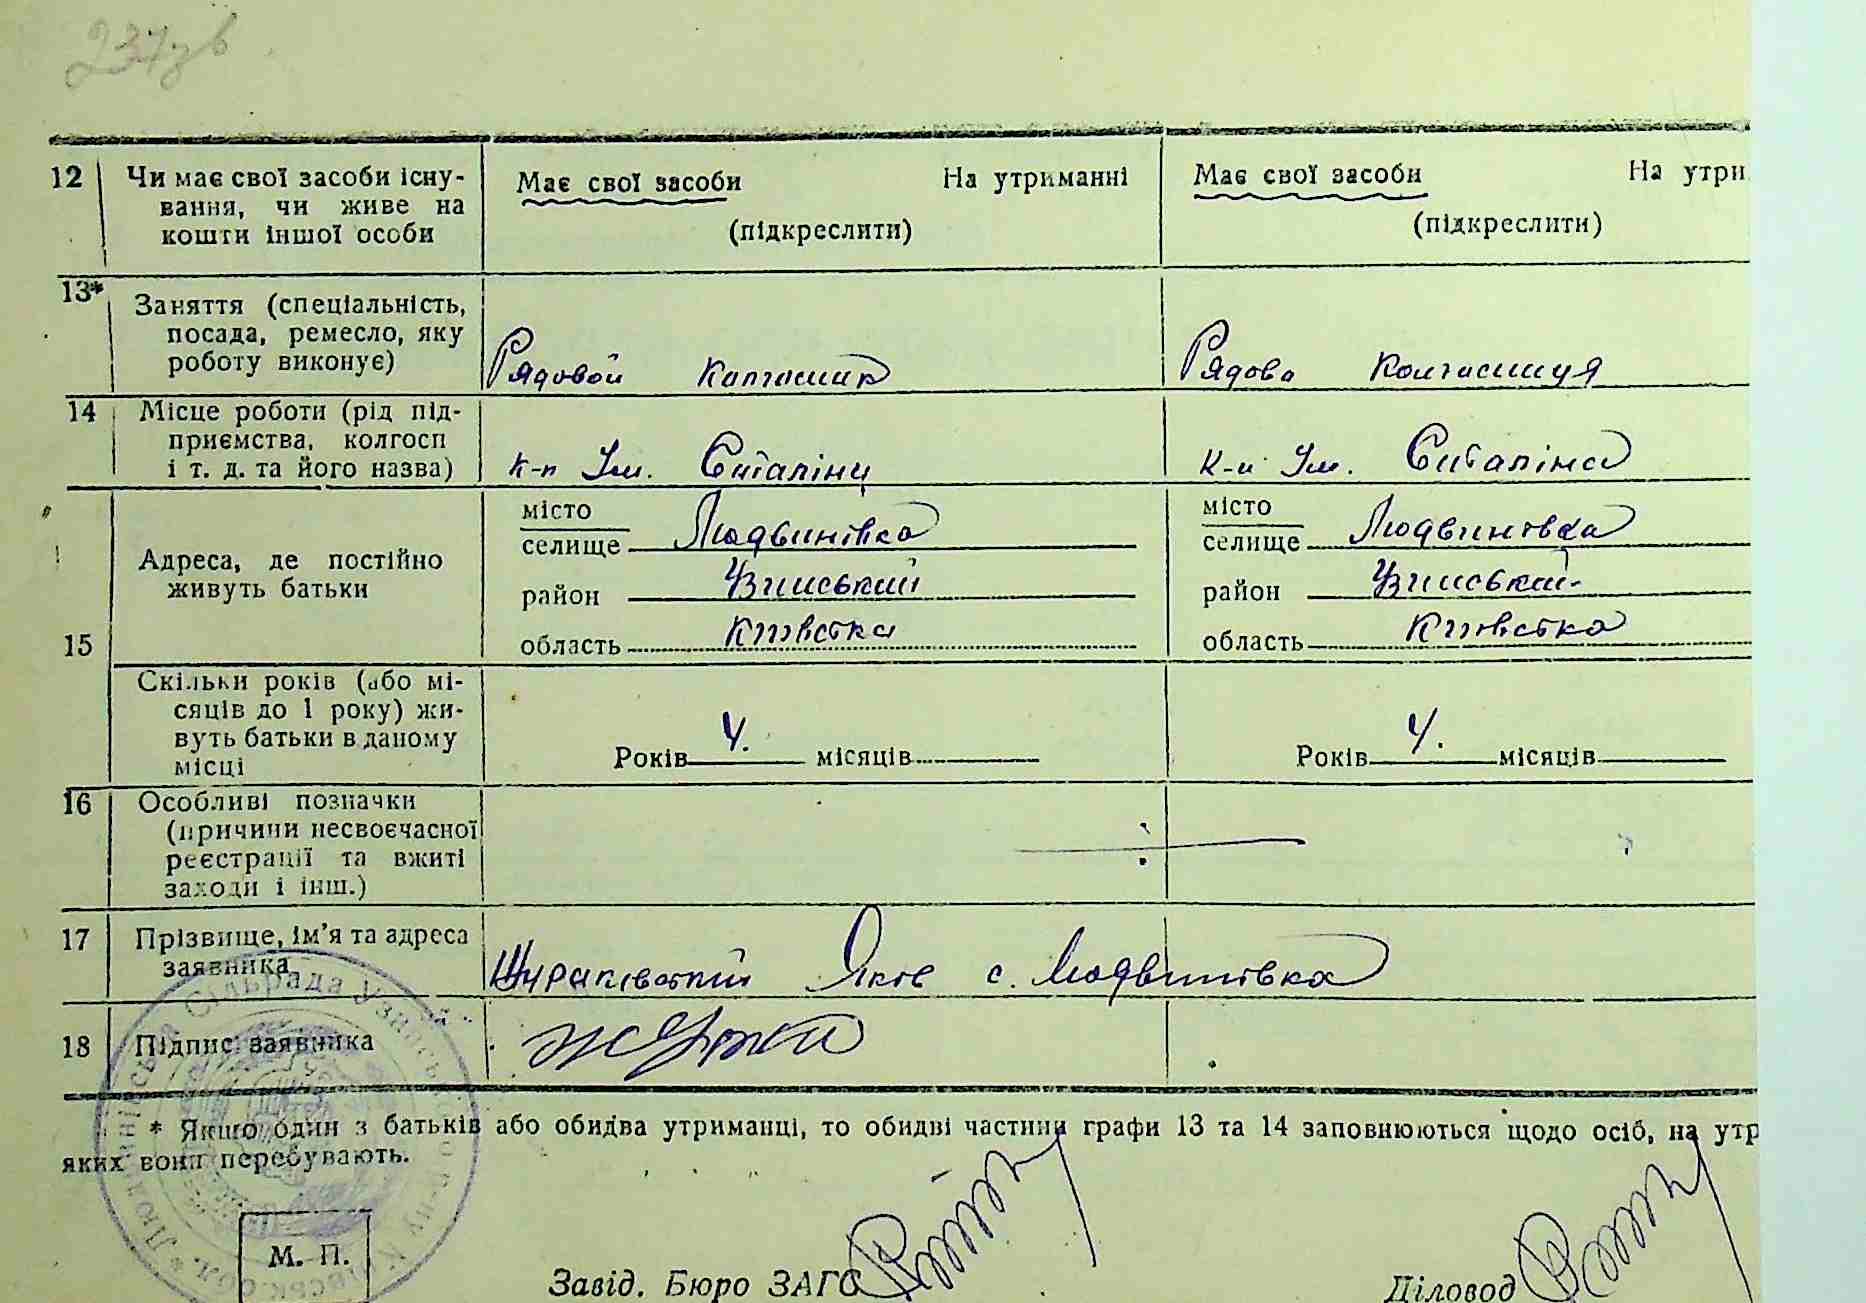 237зв
12 Чи має свої засоби існу-
вання, чи живе на
кошти іншої особи
Має свої засоби На утриманні
(підкреслити)
Має свої засоби На утри
(підкреслити)
13* Заняття (спеціальність,
посада, ремесло, яку
роботу виконує)
Рядовой Колгосник
Рядова Колгосниця
14 Місце роботи (рід під-
приємства, колгосп
і т. д. та його назва)
к-п Ім. Сталіна
к-п Ім. Сталіна
15 Адреса, де постійно
живуть батьки
місто
селище Людвинівка
район Узинський
область Київска
місто
селище Людвиновка
район Узинський
область Київска
Скільки років (або мі-
сяців до 1 року) жи-
вуть батьки в даному
місці
Років 4. місяців
Років 4. місяців
16 Особливі позначки
(причини несвоєчасної
реєстрації та вжиті
заходи і інш.)
17 Прізвище, ім'я та адреса
заявника
Яків с. Людвинівка
18 Підпис заявника
* Якщо один з батьків або обидва утриманці, то обидві частини графи 13 та 14 заповнюються щодо осіб, на утр
яких вони перебувають.
Сільрада Узинського р-ну Київськ. обл.
М. П.
Завід. Бюро ЗАГС
Діловод